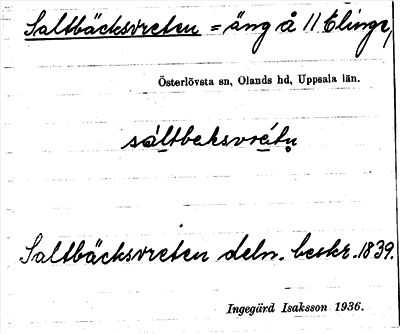 Saltbäcksvreten = äng å 11 Elinge,
Österlövsta sn, Olands hd, Uppsala län.
sáltbeksvrétu̥
Saltbäcksvreten deln. beskr. 1839.
Ingegärd Isaksson 1936.